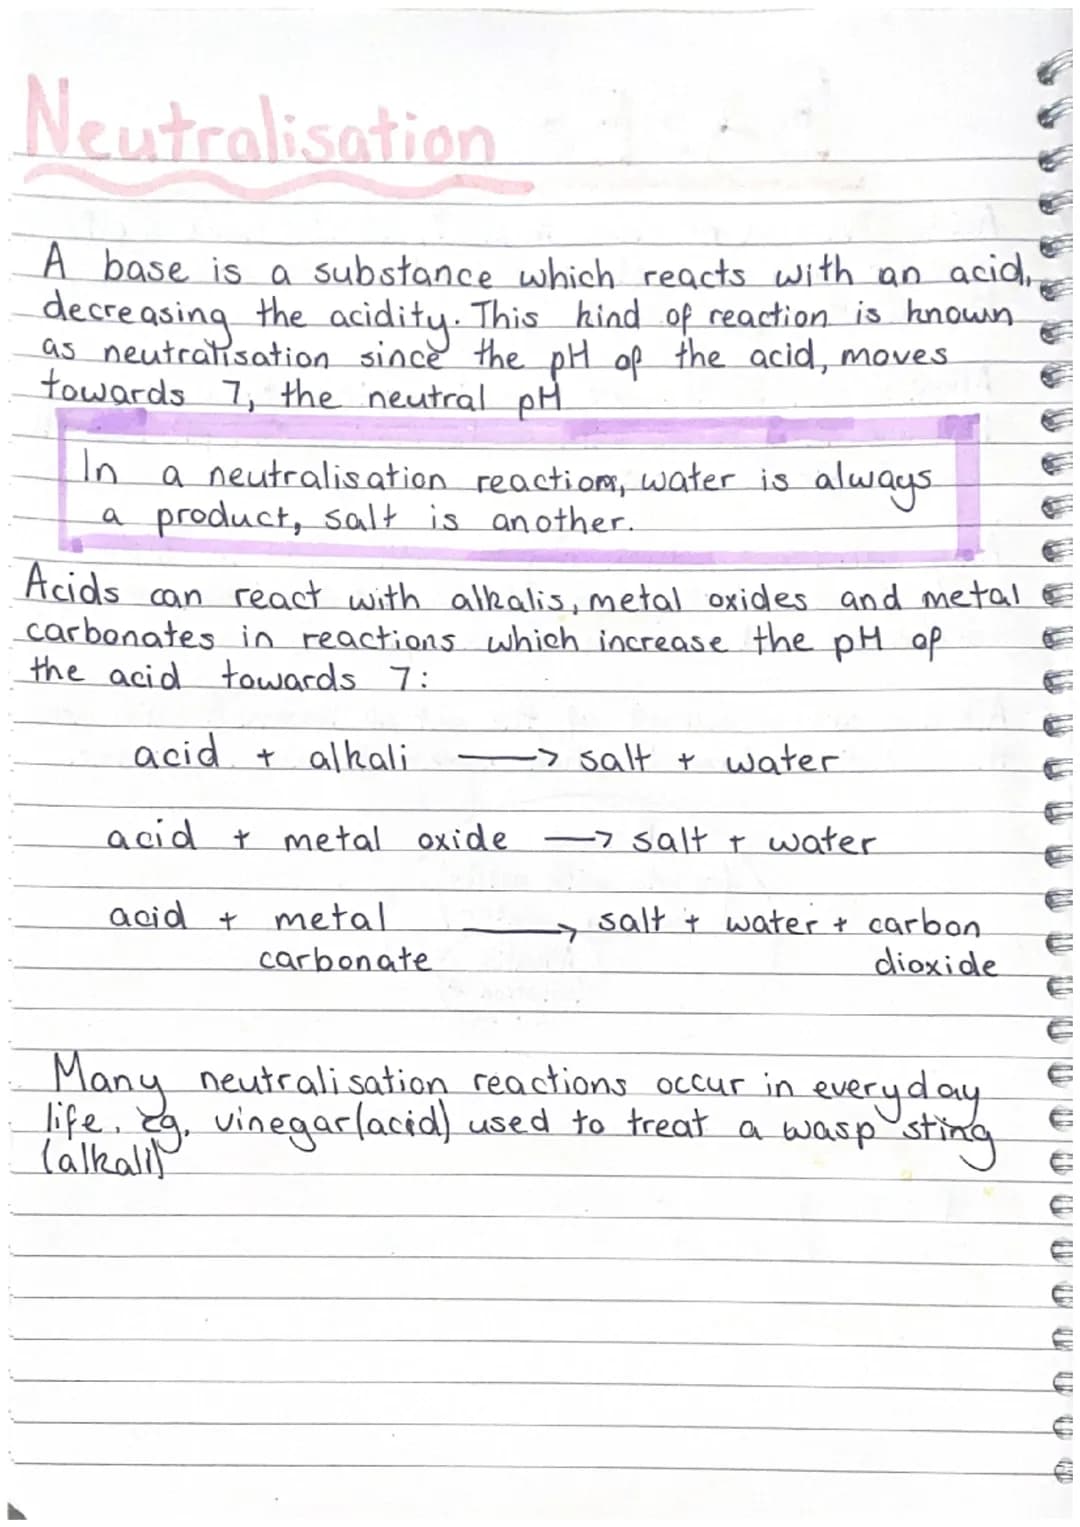 Neutralisation
A base is a substance which reacts with an acid,
decreasing the acidity. This kind of reaction is known
as neutralisation since the pH of the acid, moves
towards 7, the neutral pH
In a neutralisation reaction, water is always
a product, salt is another.
Acids can react with alkalis, metal oxides and metal
carbonates in reactions which increase the pH of
the acid towards 7:
acid + alkali → salt + water
acid + metal oxide → salt + water
acid + metal → salt + water + carbon
carbonate dioxide
Many neutralisation reactions occur in everyday
life, eg. vinegar (acid) used to treat a wasp sting
(alkali)